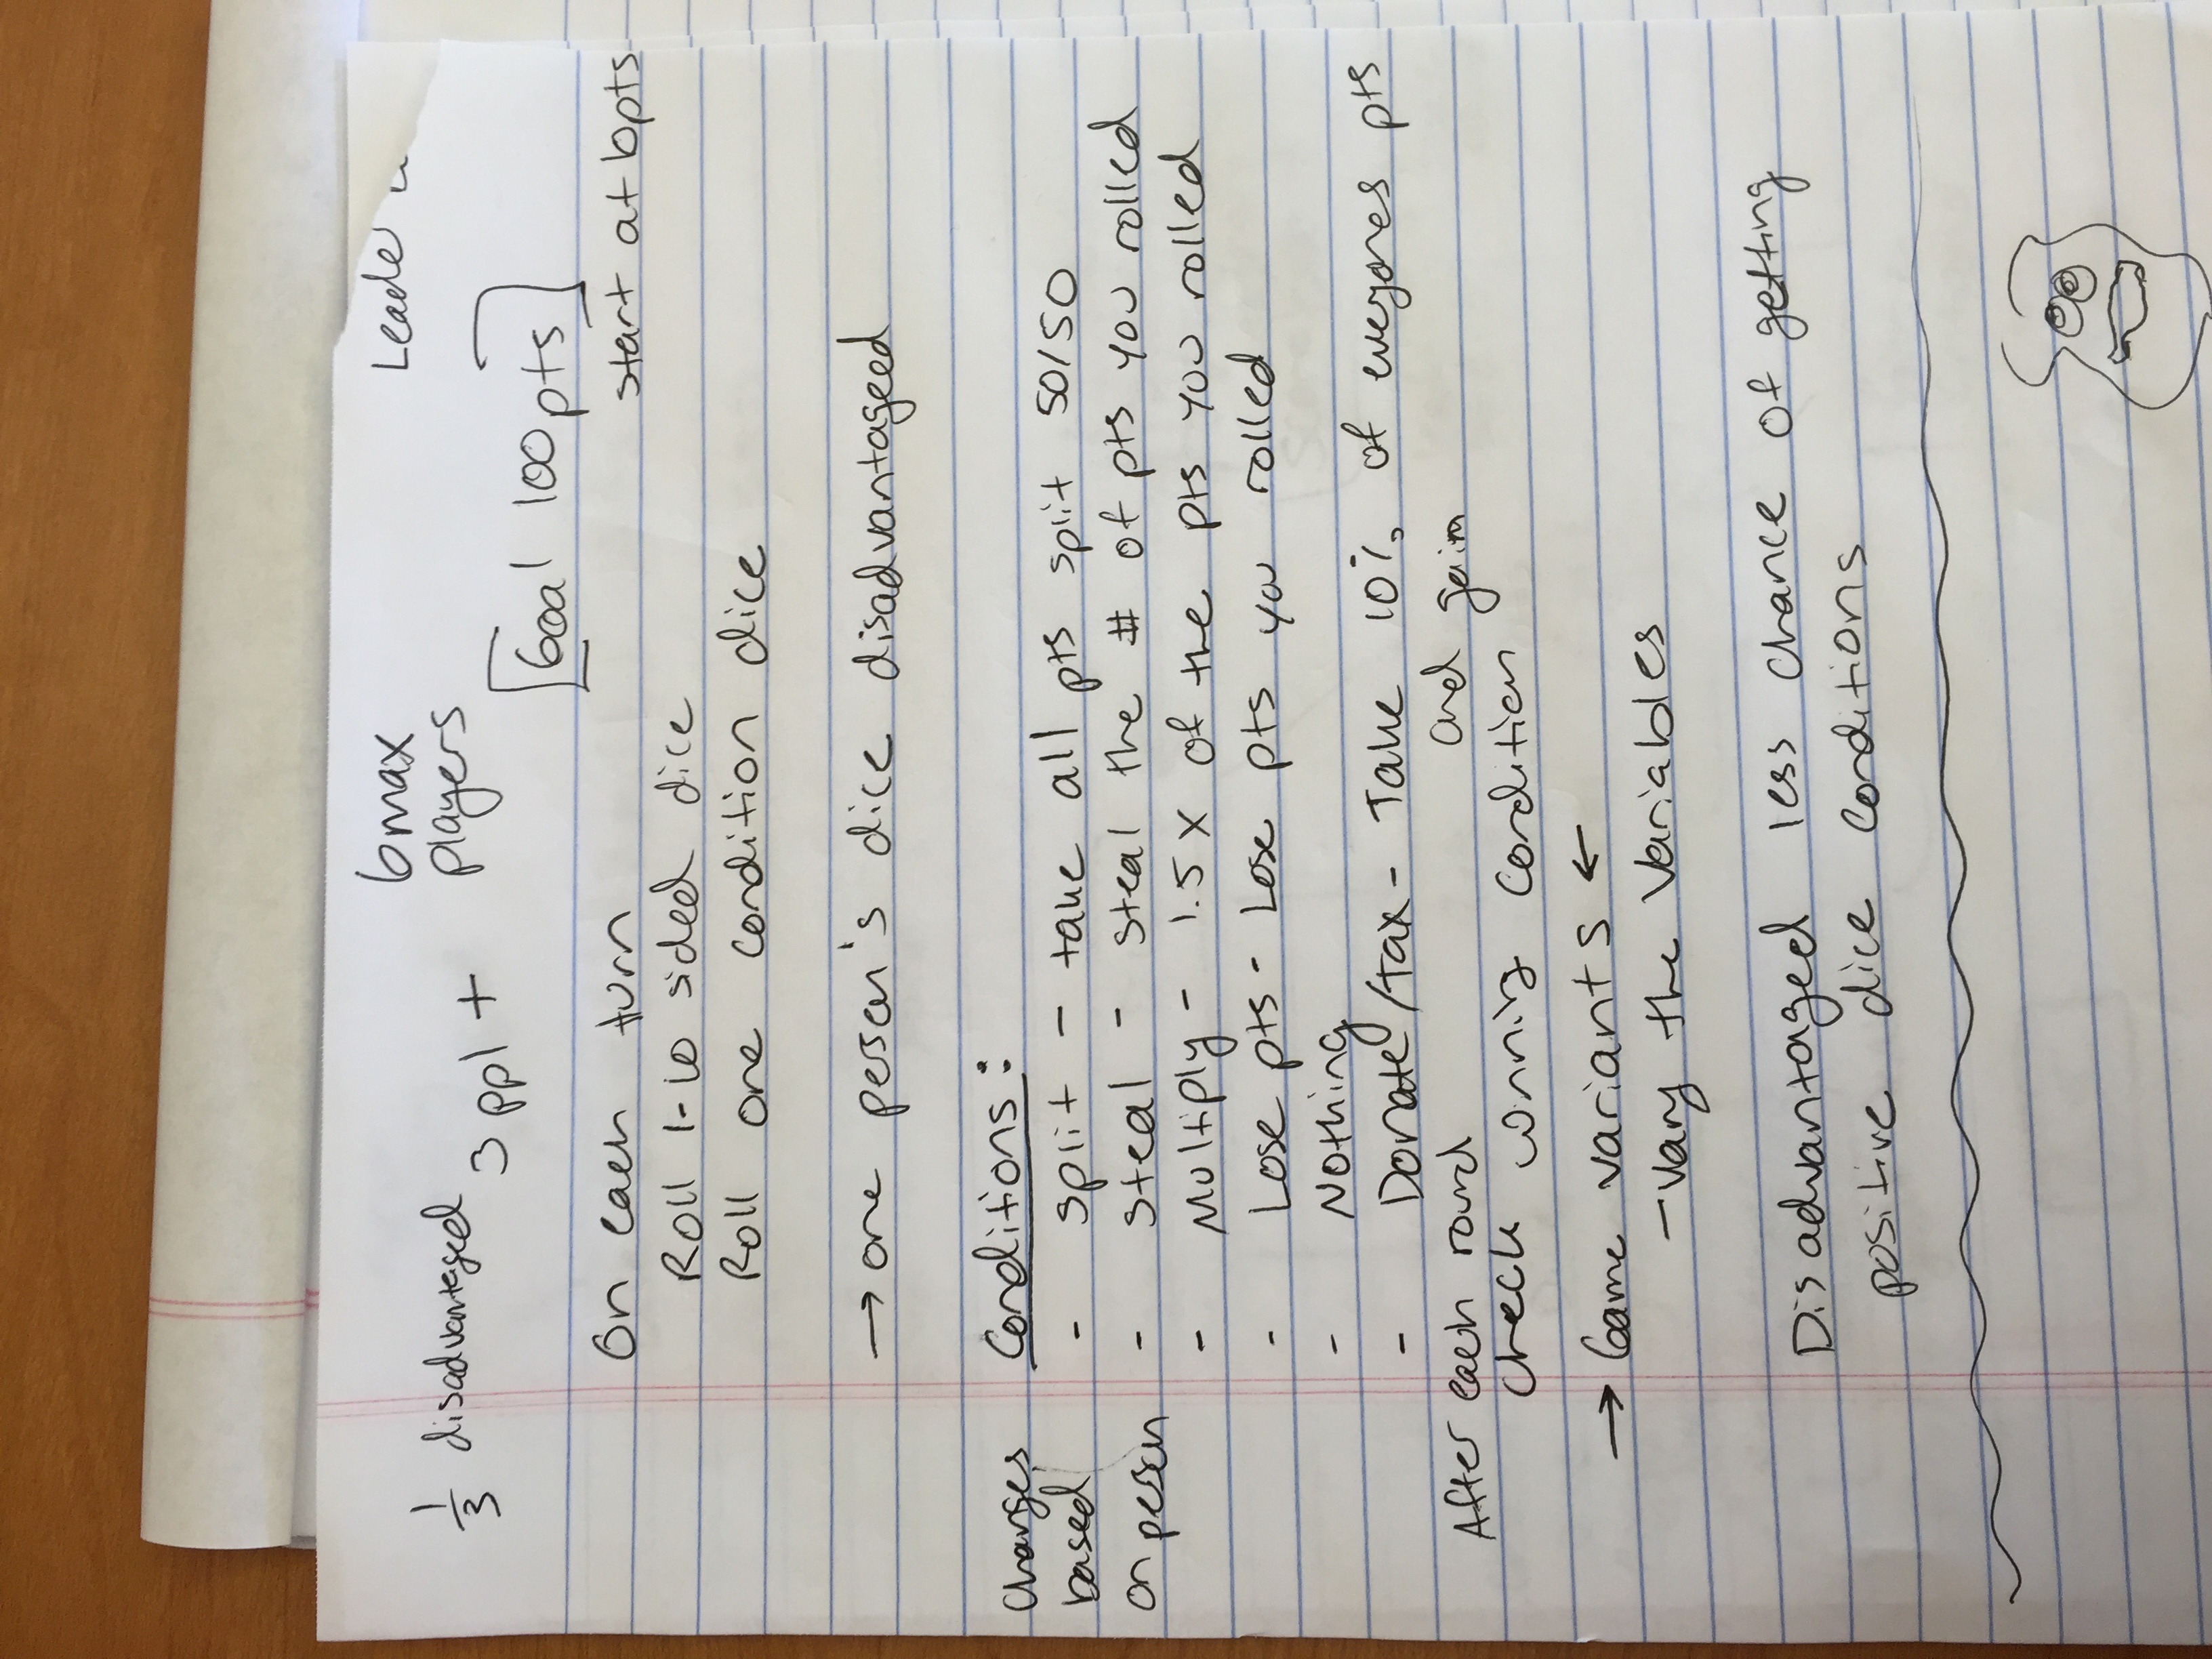 6 max
players
Leade
1/3 disadvantaged
3 ppl +
[Goal 100 pts]
On each turn
start at 10pts
Roll 1-10 sided dice
Roll one condition dice
→ one person's dice disadvantageed
Changes
based
on person
Conditions:
- split - take all pts split 50/50
- steal - steal the # of pts you rolled
- Multiply - 1.5 X of the pts you rolled
- Lose pts - Lose pts you rolled
- Nothing
- Donate/tax - Take 10% of everyones pts
and gain
After each round
check winning condition
→ Game variants ←
- vary the variables
Disadvantaged less chance of getting
positive dice conditions